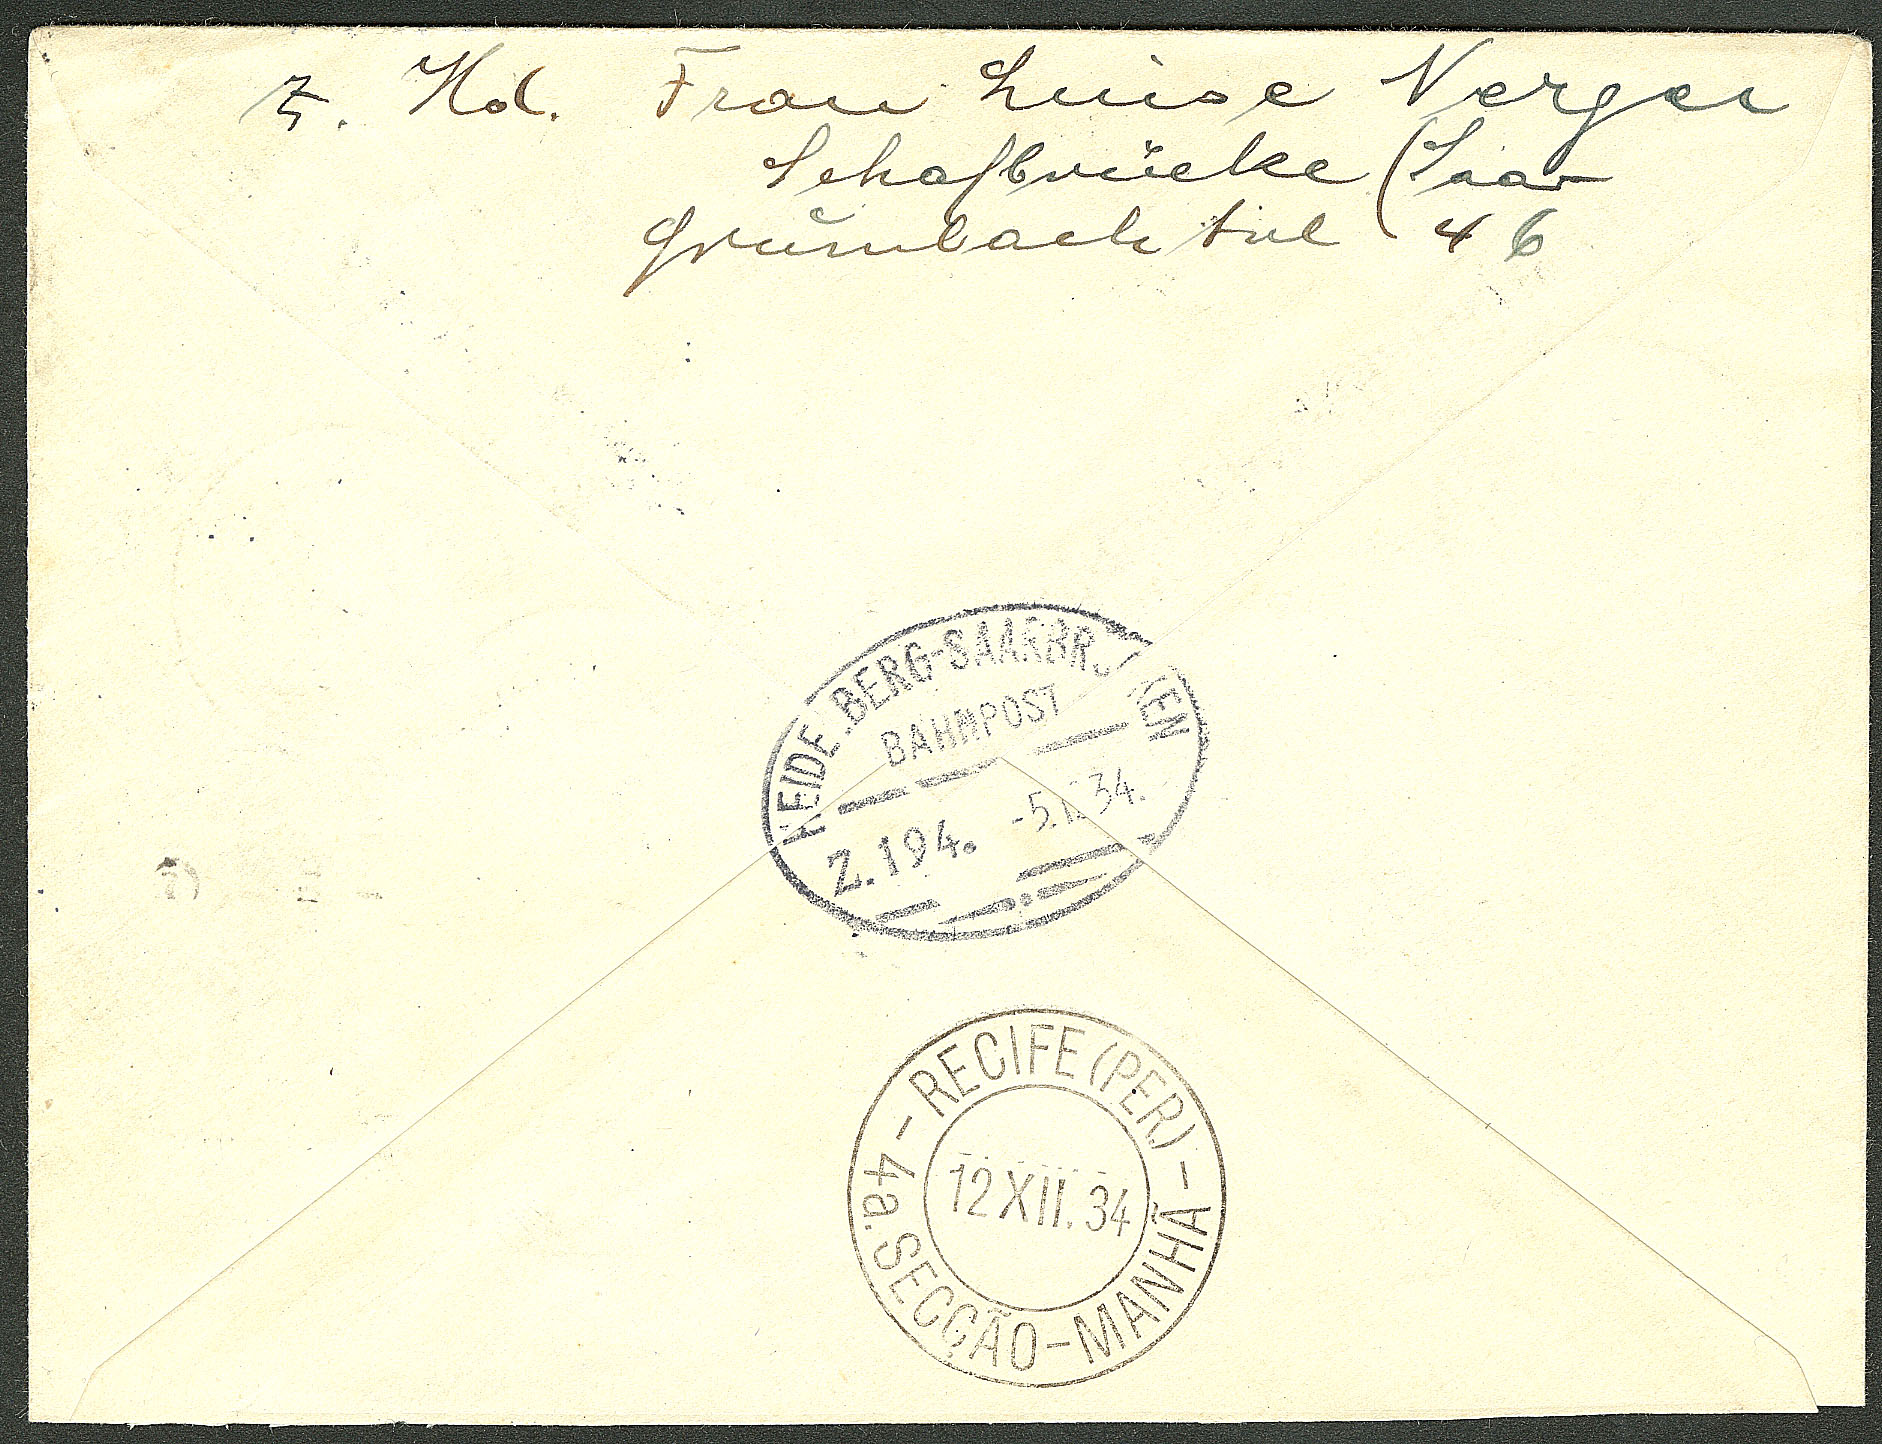 z. Hd. Frau Luise Nerger
Schafbrücke (Saar
Grumbachtal 46
HEIDELBERG-SAARBRÜCKEN
BAHNPOST
Z.194. -5. 34.
RECIFE (PER)
12 XII. 34
4a. SECÇÃO-MANHÃ